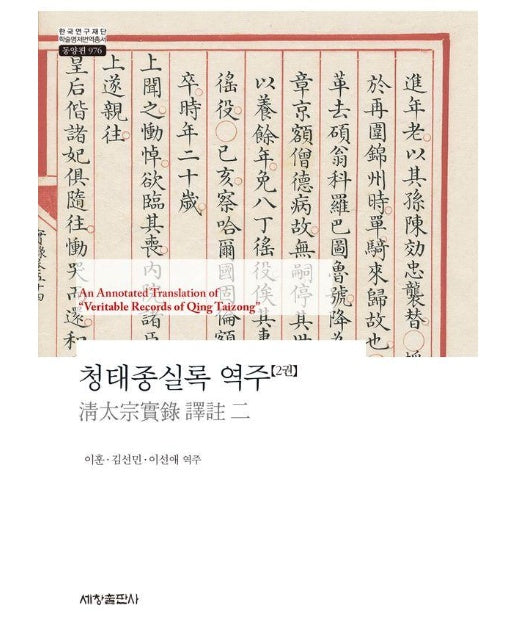 한국연구재단
학술명저번역총서
동양편 976
進年老。以其孫陳効忠襲替。○
於再圍錦州時單騎來歸故也
革去碩翁科羅巴圖魯號降為
章京額僧德病故。無嗣停其世
以養餘年免八丁徭役俟其妻
徭役○己亥察哈爾國固倫額
卒。時年二十歲。
上聞之慟悼欲臨其喪內諸臣
上遂親往。
皇后偕諸妃俱隨往慟哭而還
An Annotated Translation of
“Veritable Records of Qing Taizong”
청태종실록 역주【2권】
淸太宗實錄 譯註 二
이훈·김선민·이선애 역주
세창출판사